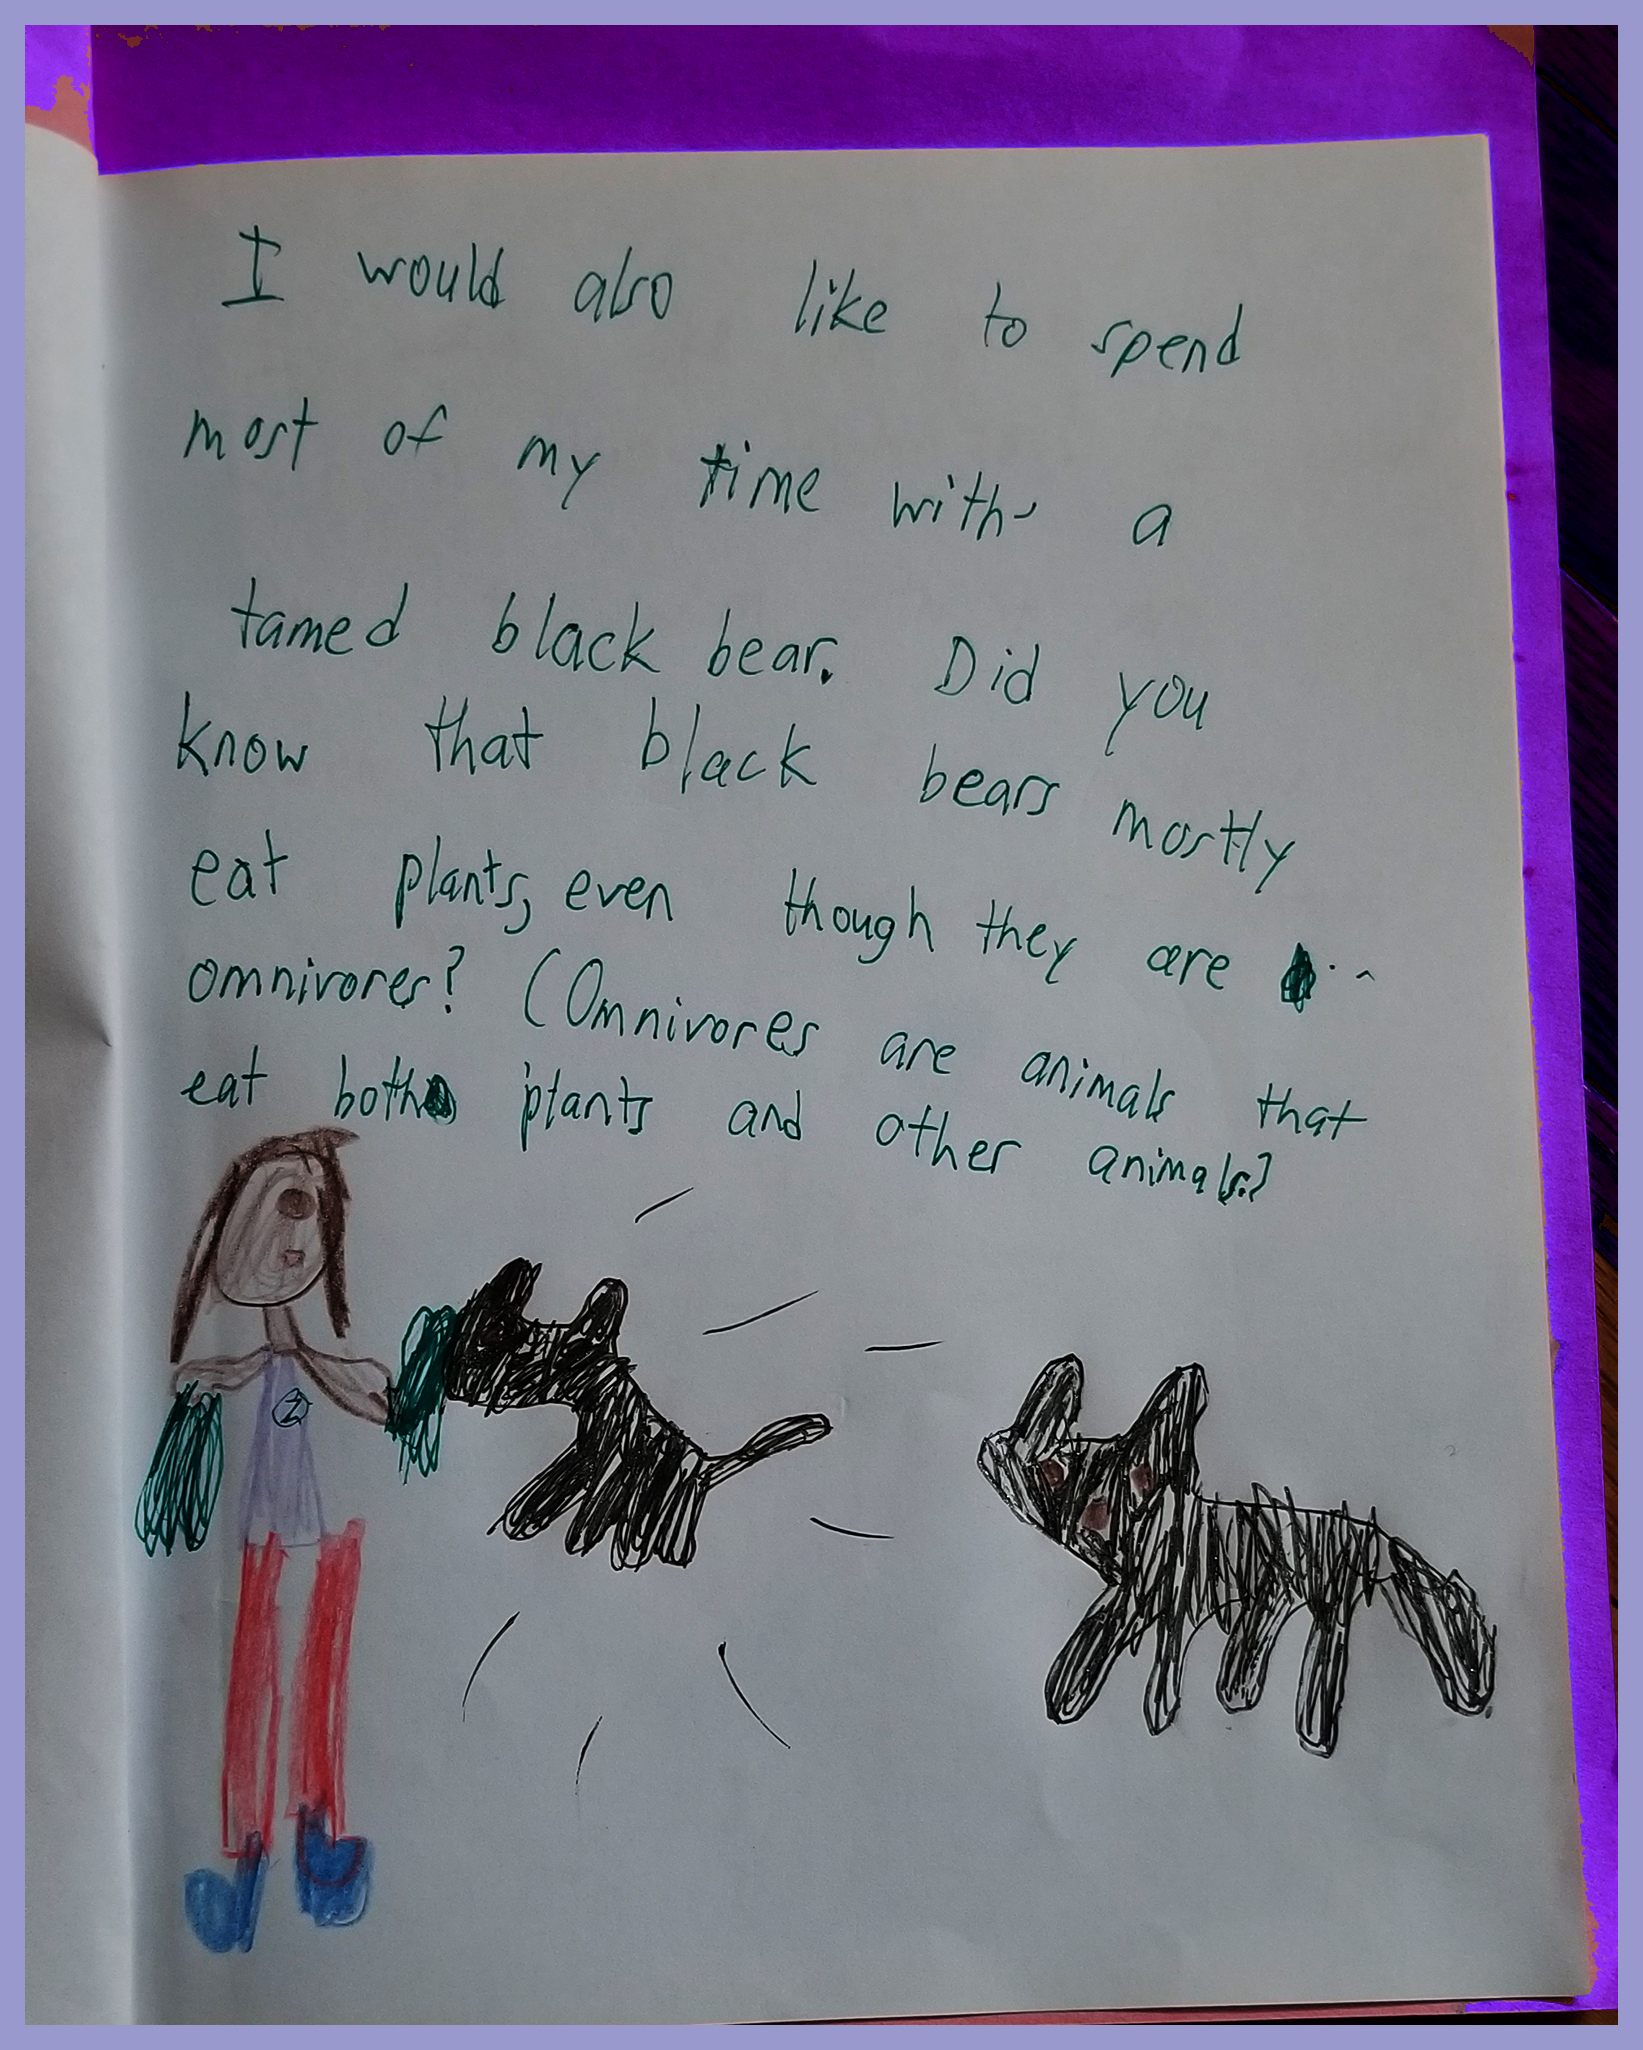 I would also like to spend
most of my time with a
tamed black bear. Did you
know that black bears mostly
eat plants, even though they are
omnivores? (Omnivores are animals that
eat both plants and other animals.)
Z